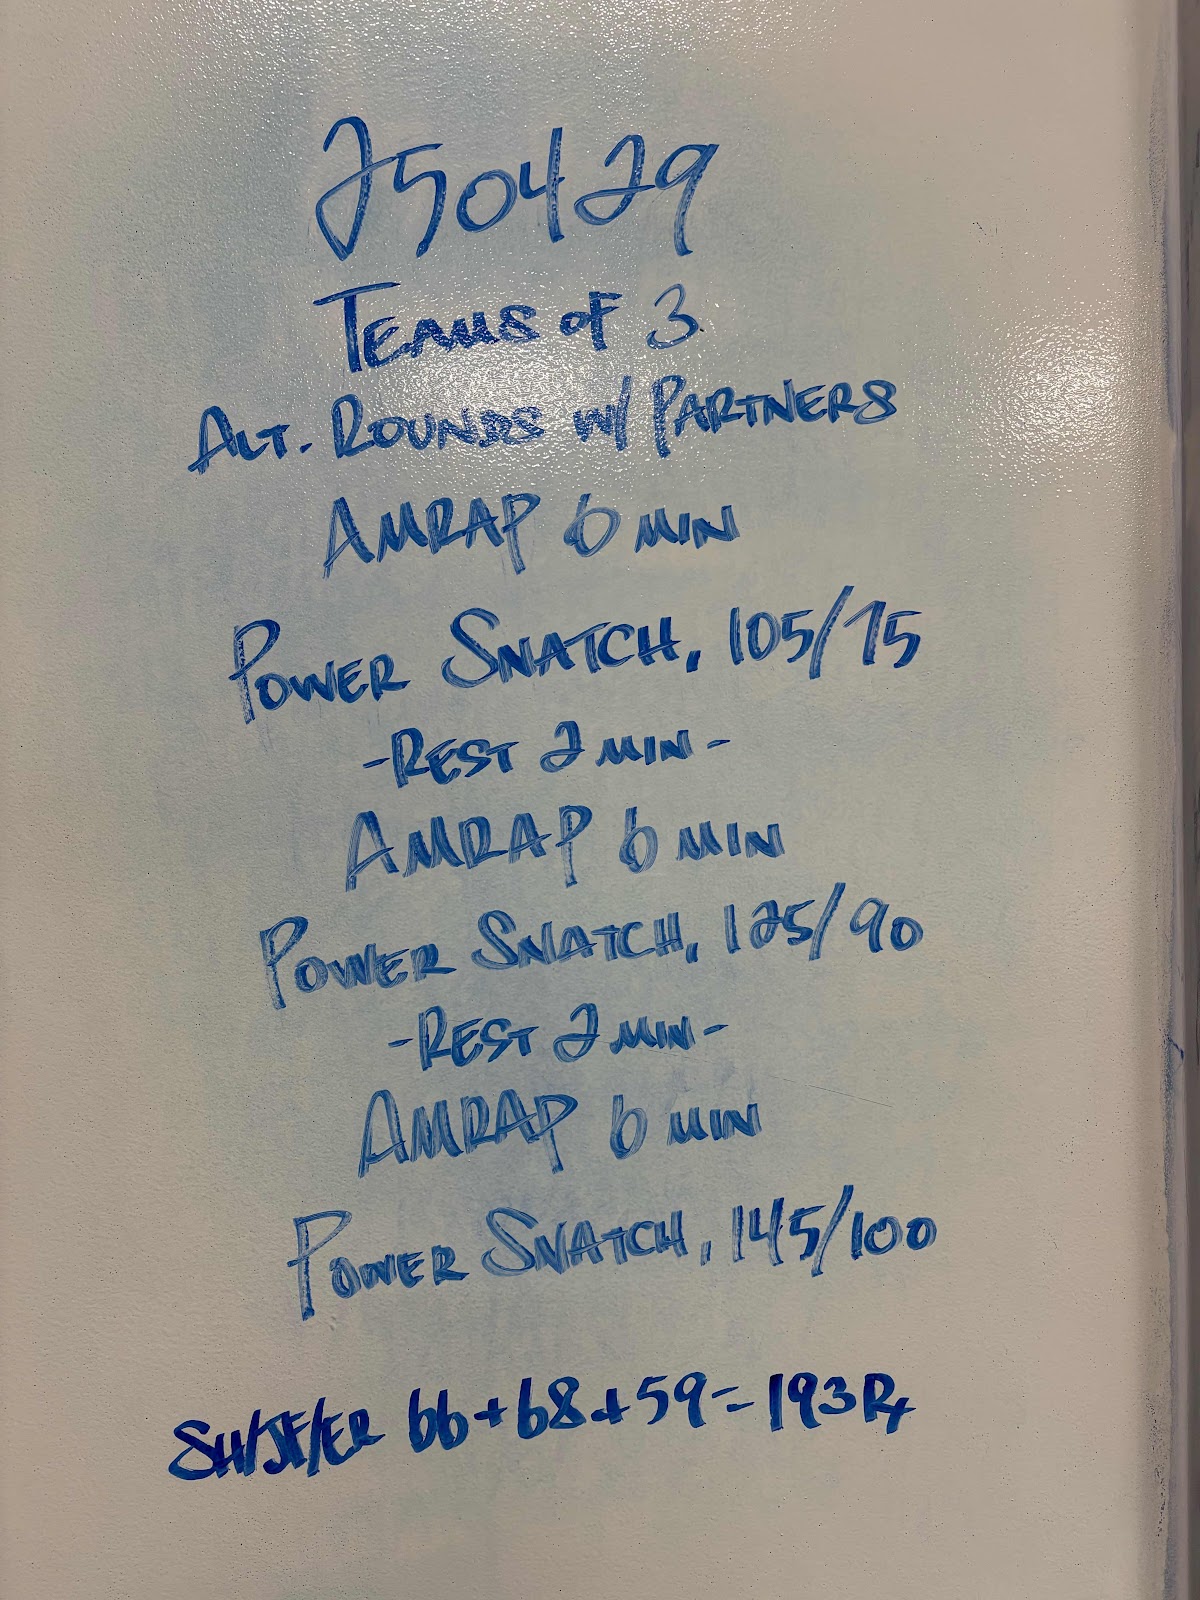 250429
TEAMS OF 3
ALT. ROUNDS W/ PARTNERS
AMRAP 6 MIN
POWER SNATCH, 105/75
-REST 2 MIN-
AMRAP 6 MIN
POWER SNATCH, 125/90
-REST 2 MIN-
AMRAP 6 MIN
POWER SNATCH, 145/100
SH/JF/ER 66+68+59=193 Rx